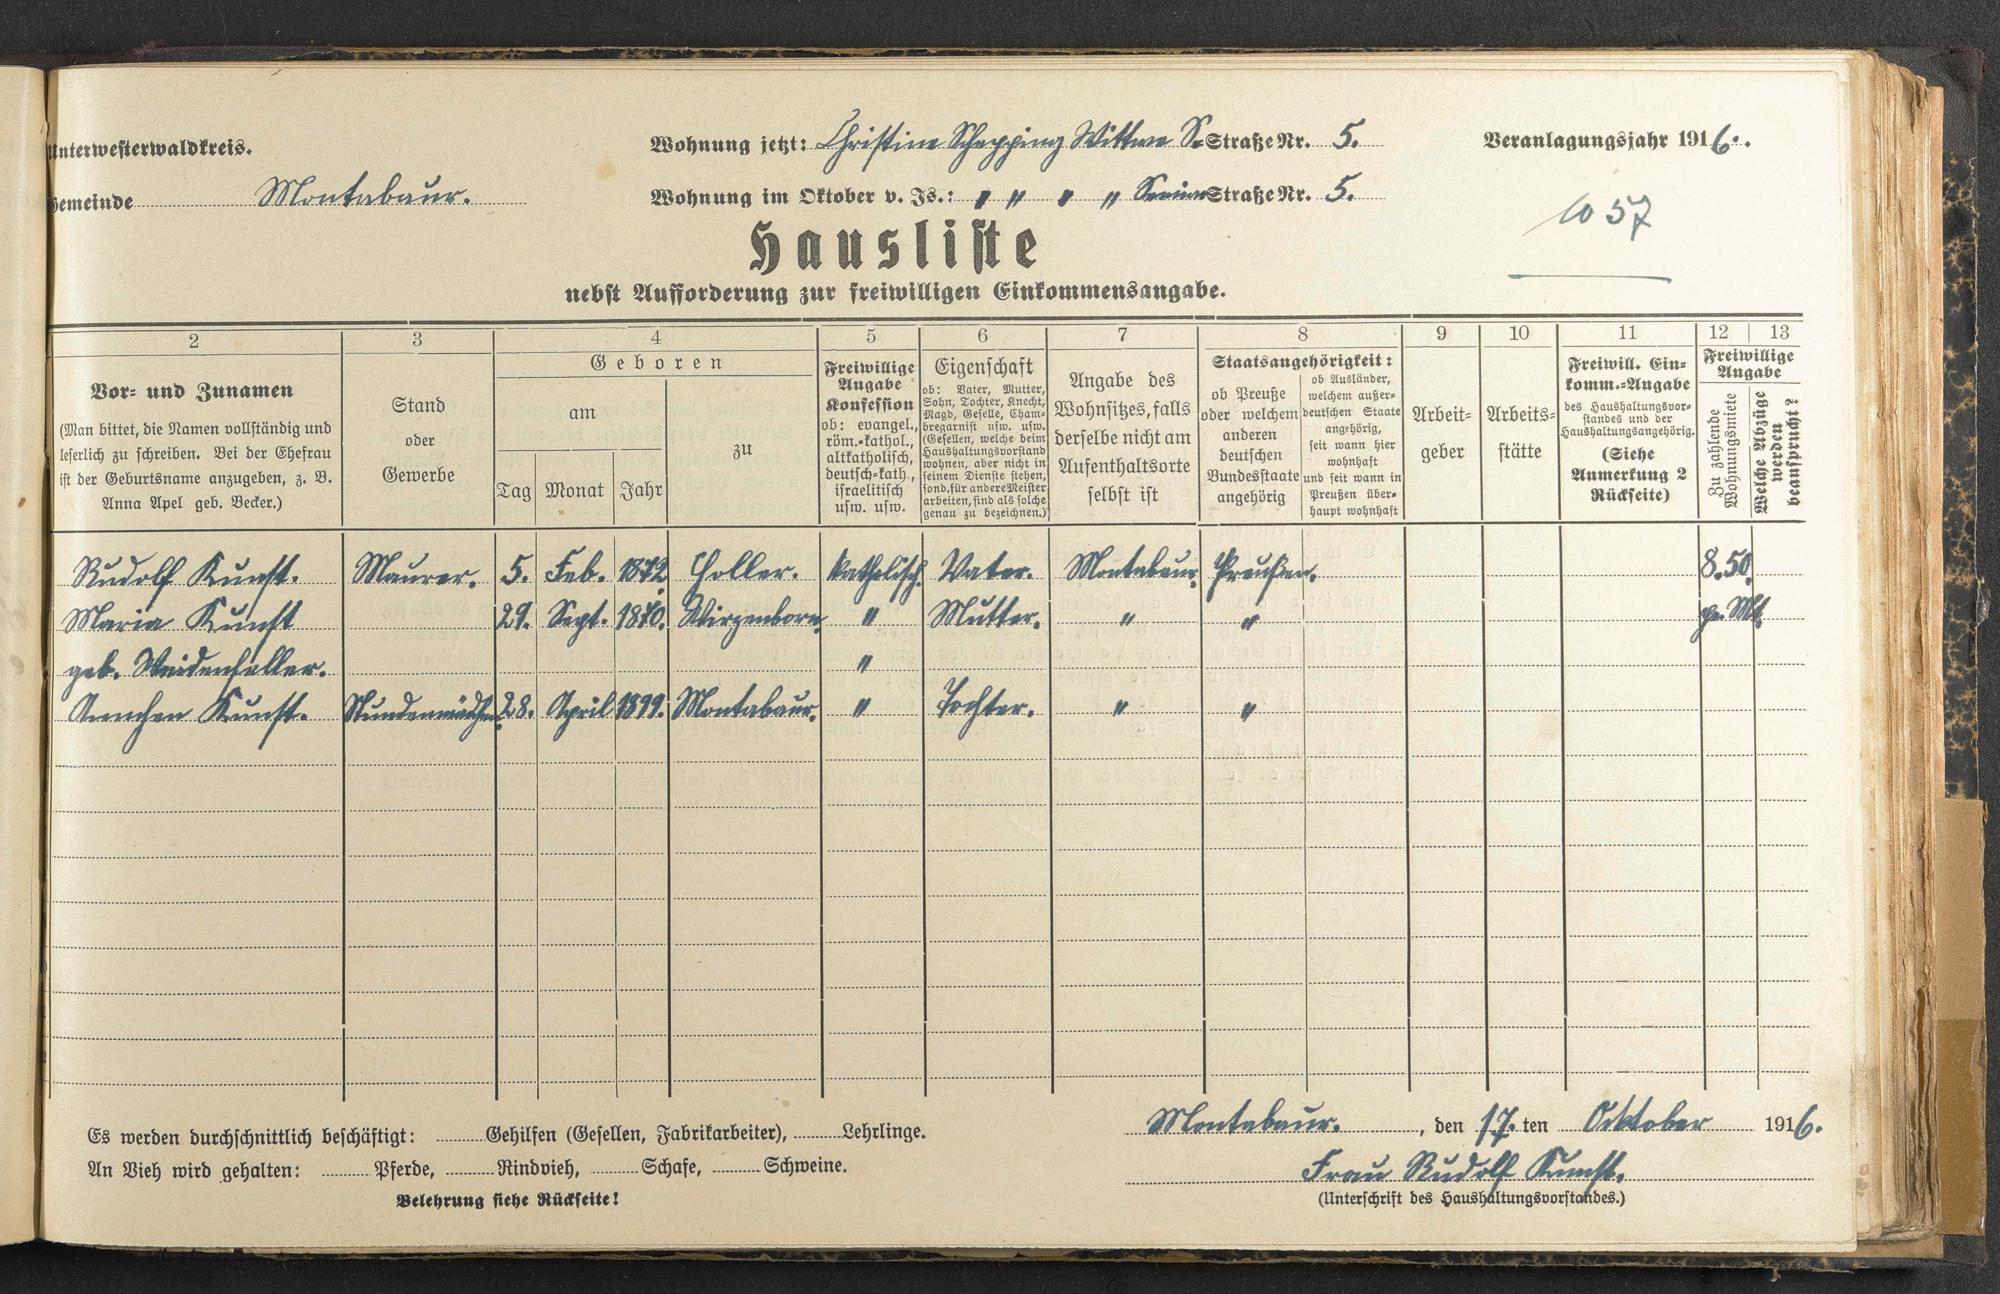 Unterwesterwaldkreis.
Wohnung jetzt: Christine Schepping Wittwe S. Straße Nr. 5.
Veranlagungsjahr 1916.
Gemeinde Montabaur.
Wohnung im Oktober v. Js.: " " " " Straße Nr. 5.
57
Hausliste
nebst Aufforderung zur freiwilligen Einkommensangabe.
2 3 4 5 6 7 8 9 10 11 12 13
Vor- und Zunamen
(Man bittet, die Namen vollständig und
leserlich zu schreiben. Bei der Ehefrau
ist der Geburtsname anzugeben, z. B.
Anna Apel geb. Becker.)
Stand
oder
Gewerbe
Geboren
am
zu
Tag Monat Jahr
Freiwillige
Angabe
Konfession
ob: evangel.,
röm.-kathol.,
altkatholisch,
deutsch-kath.,
israelitisch
usw. usw.
Eigenschaft
ob: Vater, Mutter,
Sohn, Tochter, Knecht,
Magd, Geselle, Cham-
bregarnist usw. usw.
(Gesellen, welche beim
Haushaltungsvorstand
wohnen, aber nicht in
seinem Dienste stehen,
sond. für andere Meister
arbeiten, sind als solche
genau zu bezeichnen.)
Angabe des
Wohnsitzes, falls
derselbe nicht am
Aufenthaltsorte
selbst ist
Staatsangehörigkeit:
ob Preuße
oder welchem
anderen
deutschen
Bundesstaate
angehörig
ob Ausländer,
welchem außer-
deutschen Staate
angehörig,
seit wann hier
wohnhaft
und seit wann in
Preußen über-
haupt wohnhaft
Arbeit-
geber
Arbeits-
stätte
Freiwill. Ein-
komm.-Angabe
des Haushaltungsvor-
standes und der
Haushaltungsangehörig.
(Siehe
Anmerkung 2
Rückseite)
Freiwillige
Angabe
Zu zahlende
Wohnungsmiete
Welche Abzüge
werden
beansprucht?
Rudolf Kunst. Maurer. 5. Feb. 1872 Holler. katholisch. Vater. Montabaur. Preußen. 8.50.
Maria Kunst 29. Sept. 1870. Wirzenborn. " Mutter. " " pr. Mt.
geb. Weidenfeller. "
Annchen Kunst. Stundenmädchen. 28. April 1899. Montabaur. " Tochter. " "
Es werden durchschnittlich beschäftigt: Gehilfen (Gesellen, Fabrikarbeiter), Lehrlinge.
An Vieh wird gehalten: Pferde, Rindvieh, Schafe, Schweine.
Belehrung siehe Rückseite!
Montabaur. , den 17. ten Oktober 1916.
Frau Rudolf Kunst.
(Unterschrift des Haushaltungsvorstandes.)